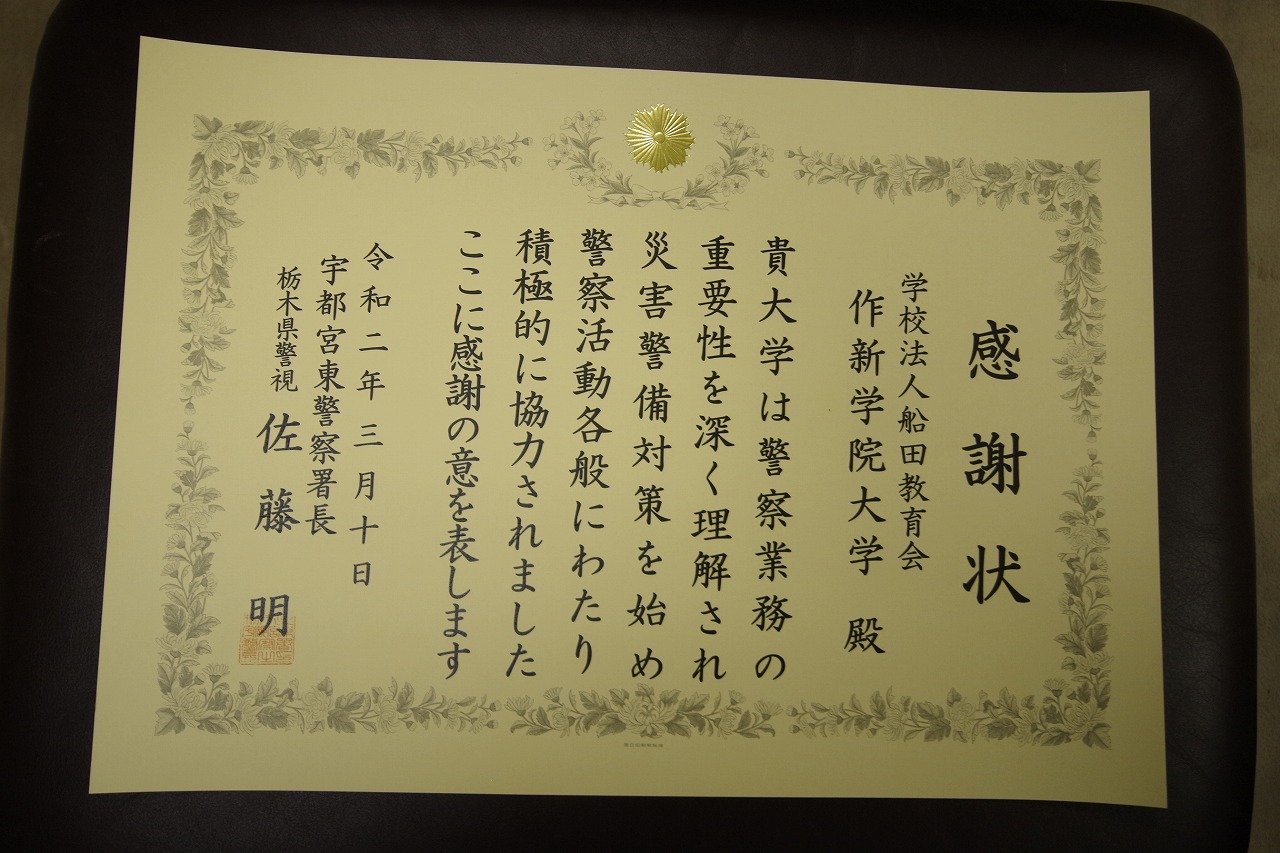 感謝状
学校法人船田教育会
作新学院大学 殿
貴大学は警察業務の
重要性を深く理解され
災害警備対策を始め
警察活動各般にわたり
積極的に協力されました
ここに感謝の意を表します
令和二年三月十日
宇都宮東警察署長
栃木県警視 佐藤明